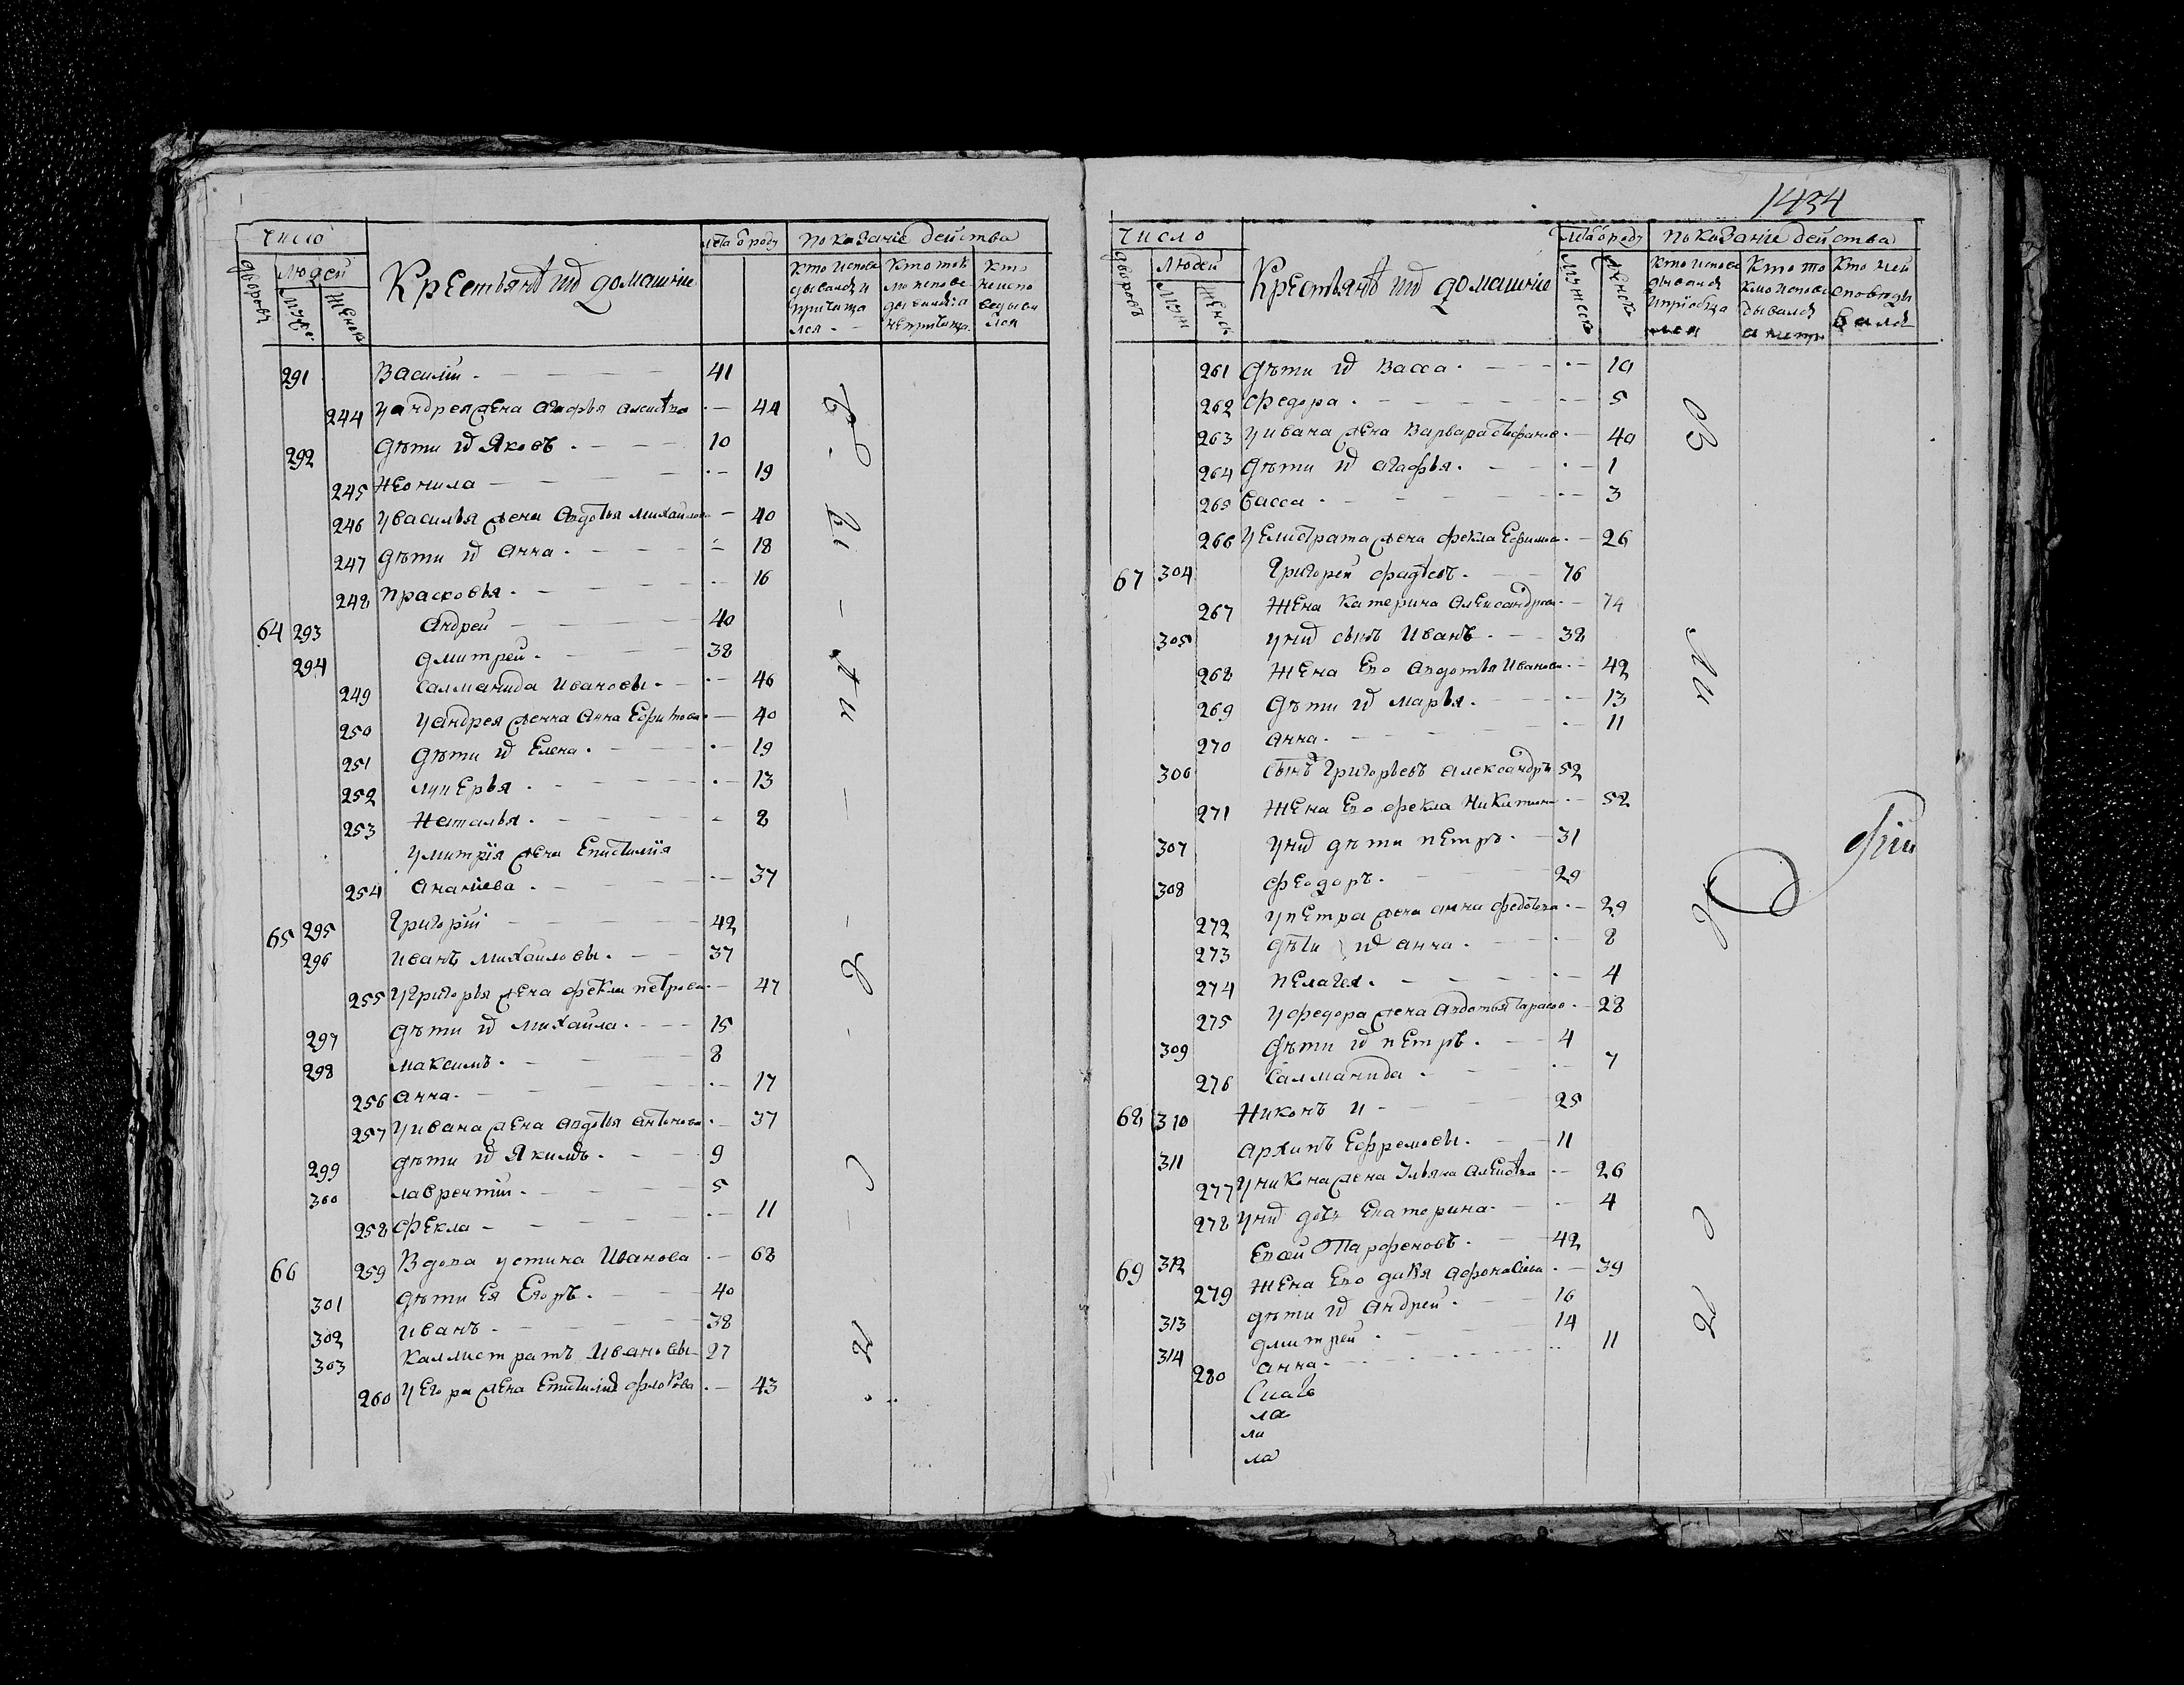 число
лѣта ѿ роду
показаніе действа
дворовъ
людей
муже.
женск
Крестьянѣ и иⷯ домашніе
кто исповедывался и причащался
кто токмо исповедывался а не причаща.
кто не исповедывался
291 Василіи - 41
244 У андрея жена агафья алексѣева - 44
292 дѣти иⷯ Яковъ - 10
245 Неонила - 19
246 У василья жена Авдотья михаилова - 40
247 дѣти иⷯ анна - 18
248 прасковья - 16
64 293 андреи - 40
294 дмитреи - 38
249 салманида ивановы - 46
250 У андрея жена Анна Ефимова - 40
251 дѣти иⷯ Елена - 19
252 лукерья - 13
253 Наталья - 8
У митрїя жена Епистимїя
254 ананиева - 37
65 295 Григоріи - 42
296 иванъ михаиловы - 37
255 У Григорья жена фекла петрова - 47
297 дѣти иⷯ михаила - 15
298 максимъ - 8
256 анна - 17
257 У ивана жена авдотья антонова - 37
299 дѣти иⷯ Якимъ - 9
300 лаврентіи - 5
258 фекла - 11
66 259 Вдова устина Иванова - 68
301 дѣти Ея Егоръ - 40
302 иванъ - 38
303 каллистратъ Ивановы - 27
260 У Егора жена Епистимия - 43
1434
число
лѣта ѿ роду
показаніе действа
дворовъ
людей
муж
женск
Крестьянѣ и иⷯ домашніе
мужеск
женск
кто исповедывался и пріобщался
кто токмо исповедывался а не пр
кто не исповѣдывался
261 дѣти иⷯ Васса - 10
262 федора - 5
263 У ивана жена Варвара стефанов - 40
264 дѣти иⷯ агафья - 1
265 Васса - 3
266 У Елистрата жена фекла Ефимова - 26
67 304 Григореи фадѣевъ - 76
267 Жена катерина Александрова - 74
305 У ниⷯ сынъ Иванъ - 38
268 Жена Его авдотья Иванова - 42
269 дѣти иⷯ марья - 13
270 анна - 11
306 сынъ Григорьевъ александръ 52
271 Жена Его фекла Никитина - 52
307 У ниⷯ дѣти петръ - 31
308 феодоръ - 29
272 У петра жена анна федотова - 29
273 дѣти иⷯ анна - 8
274 пелагея - 4
275 У федора жена авдотья тарасов - 28
309 дѣти иⷯ петръ - 4
276 салманида - 7
68 310 Никонъ и - 25
311 архипъ Ефремовы - 11
277 У никона жена Ульяна алексѣева - 26
278 У ниⷯ дочь Екатерина - 4
69 312 Парфеновъ - 42
279 Жена Его афонасіева - 39
313 дѣти иⷯ андреи - 16
314 дмитреи - 14
280 анна - 11
ла
ли
ла